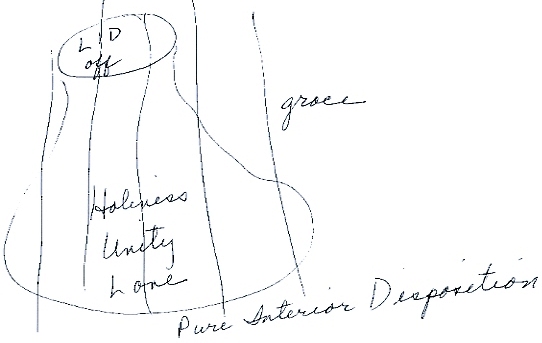 LID
off
grace
Holiness
Unity
Love
Pure Interior Disposition